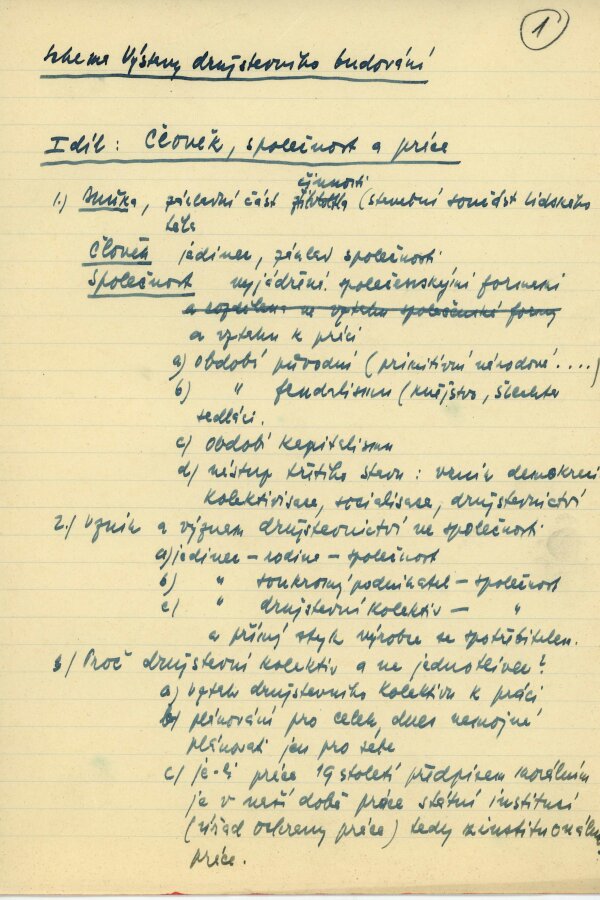 1
Schema Výstavy družstevního budování
I díl: Člověk, společnost a práce
činnosti
1.) Buňka, základní část (stavební součást lidského
těla
Člověk jedinec, základ společnosti
Společnost vyjádření společenskými formami
a rozdělena ve vztahu společenské formy
a vztahu k práci
a) období původní (primitivní národové ....)
b) " feudalismu (kněžstvo, šlechta
sedláci.
c) období kapitalismu
d) nástup třetího stavu: vznik demokracií
kolektivisace, socialisace, družstevnictví
2.) Vznik a význam družstevnictví ve společnosti
a) jedinec – rodina – společnost
b) " soukromý podnikatel – společnost
c) " družstevní kolektiv – "
a přímý styk výrobce se spotřebitelem.
3) Proč družstevní kolektiv a ne jednotlivec?
a) vztah družstevního kolektivu k práci
b) plánování pro celek, dnes nemožné
plánovati jen pro sebe
c) je-li práce 19 století předpisem morálním
je v naší době práce státní institucí
(úřad ochrany práce) tedy
práce.